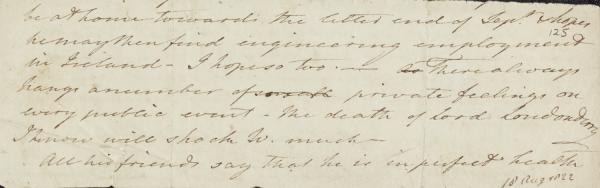 be at home towards the letter end of Sept. & hopes
125
he may then find engineering employment
in Ireland - I hope so too. — There always
hangs a number of small private feelings on
every public event - the death of Lord Londonderry
I know will shock W. much —
All his friends say that he is in perfect health
18 Aug 1822